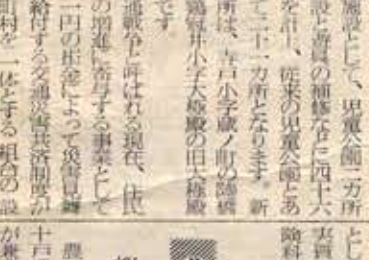 施設として、児童公園二カ所
設と遊具の補修などに四十六
を計上、従来の児童公園とあ
て二十一カ所となります。新
所は、寺戸小字蔵ノ町の跨橋
鶏冠井小字大極殿の旧大極殿
です。
通戦争と呼ばれる現在、住民
の増進に寄与する事業として
一円の出金によって災害見舞
給付する交通災害共済制度が
町村を一体とする組合の設
とし
実質
険料
農
十戸
が兼